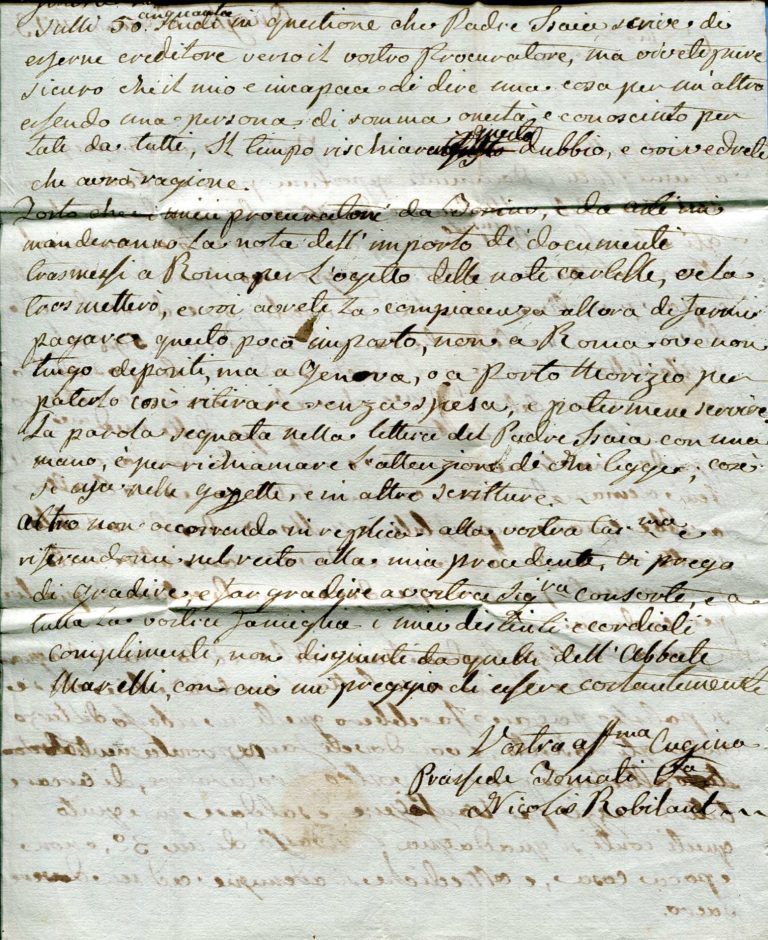 cinquanta
sulli 50. scudi in questione che Padre Isaia scrive di
esserne creditore verso il vostro Procuratore, ma vivete pure
sicuro che il mio e incapace di dire una cosa per un'altra
essendo una persona di somma onestà, e conosciuto per
tale da tutti, Il tempo rischiarerà questo dubbio, e voi vedrete
che avrà ragione.
Tosto che i miei procuratori da Torino, e da mi
manderanno la nota dell'importo di documenti
trasmessi a Roma per l'ogetto delle note cartelle, ve la
trasmetterò, e voi avrete la compiacenza allora di farmi
pagare questo poco importo, non a Roma ove non
tengo depositi, ma a Genova, o a Porto Morizio per
poterlo così ritirare senza spesa, e potermene servire
La parola segnata nella lettera del Padre Isaia con una
mano, è per richiamare l'attenzione di chi legge, così
si usa nelle gazette, e in altre scritture.
Altro non occorrendo in replica alla vostra Car.ma e
riferendomi nel resto alla mia precedente, vi prego
di gradire, e far gradire a vostra Sig.ra consorte, e a
tutta la vostra famiglia i miei distinti e cordiali
complimenti, non disgiunti da quelli dell'Abbate
Marelli, con cui mi preggio di essere costantemente
Vostra aff.ma Cugina
Prassede Tomati
Nicolis Robilant